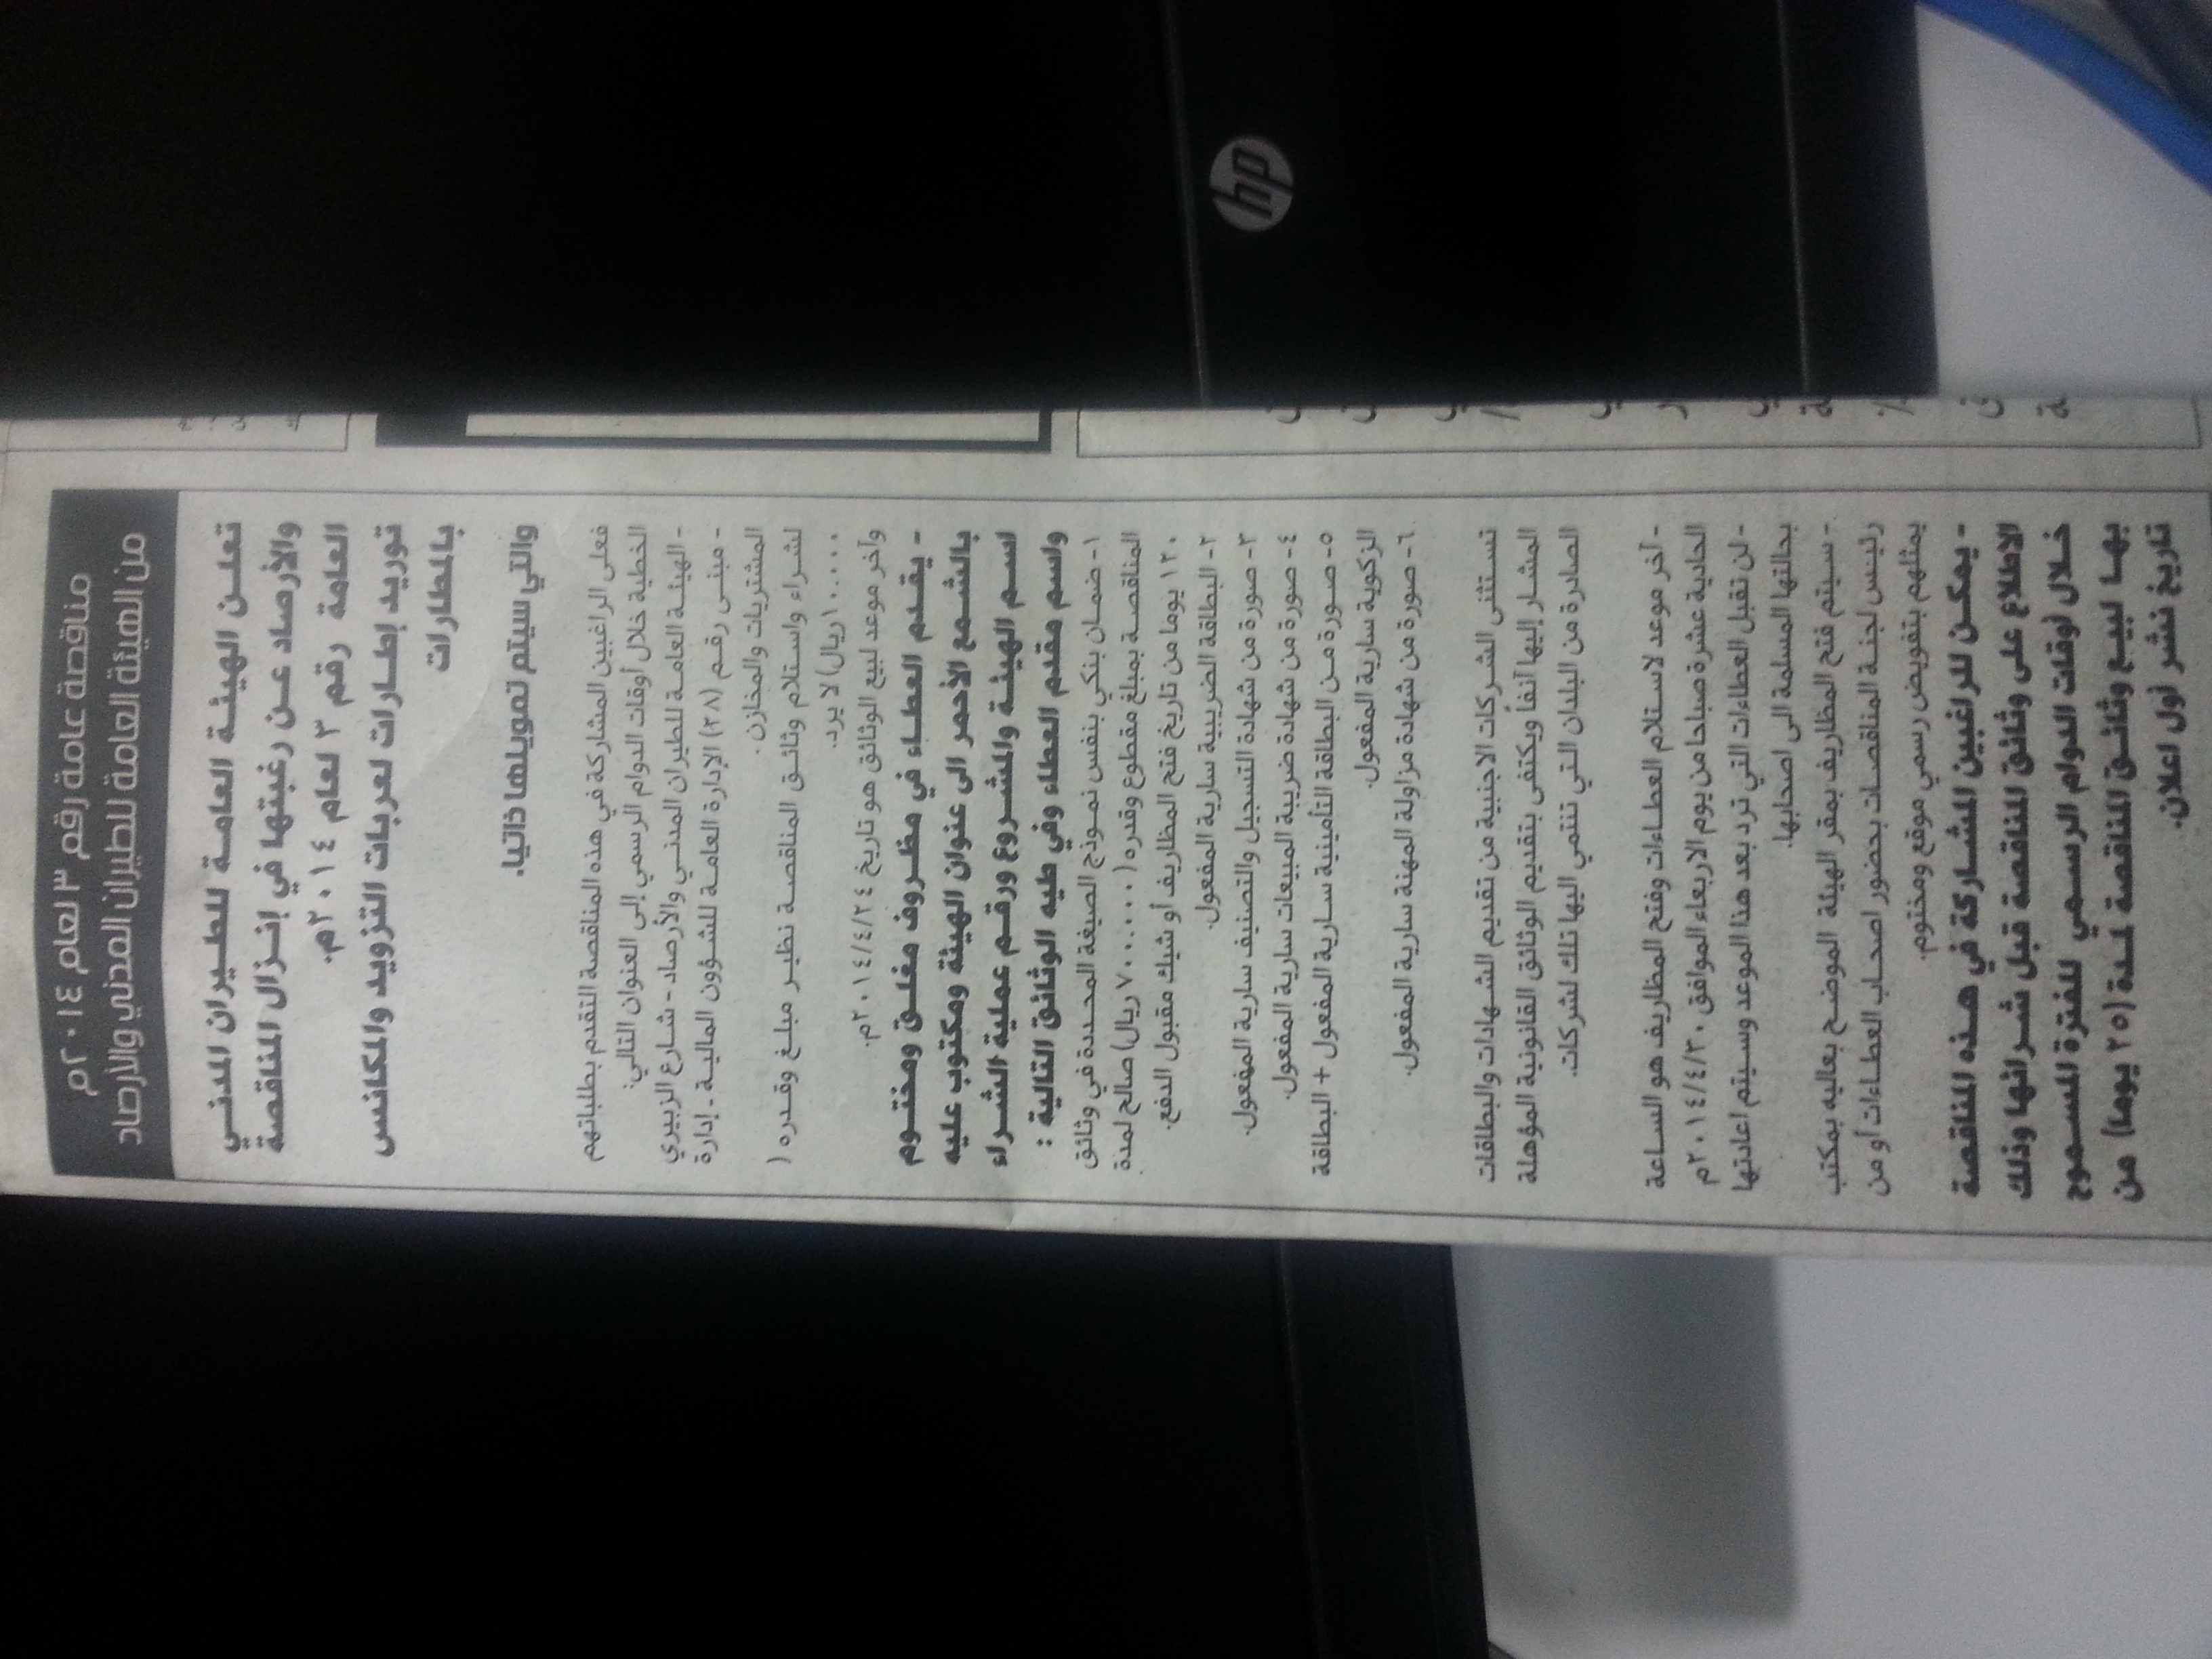 مناقصة عامة رقم ٣ لعام ٢٠١٤م
من الهيئة العامة للطيران المدني والارصاد
تعلن الهيئة العامة للطيران المدني
والأرصاد عن رغبتها في إنزال المناقصة
العامة رقم ٣ لعام ٢٠١٤م.
توريد إطارات لعربات التزويد والمكانس
بالمطارات
والتي سيتم تمويلها ذاتيا.
فعلى الراغبين المشاركة في هذه المناقصة التقدم بطلباتهم
الخطية خلال أوقات الدوام الرسمي إلى العنوان التالي:
- الهيئة العامة للطيران المدني والأرصاد - شارع الزبيري
- مبنى رقم (٢٨) الإدارة العامة للشؤون المالية - إدارة
المشتريات والمخازن.
لشراء واستلام وثائق المناقصة نظير مبلغ وقدره (
١٠.٠٠٠ ريال) لا يرد.
وآخر موعد لبيع الوثائق هو تاريخ ٢٠١٤/٤/٢٤م.
- يقدم العطاء في مظروف مغلق ومختوم
بالشمع الأحمر الى عنوان الهيئة ومكتوب عليه
اسم الهيئة والمشروع ورقم عملية الشراء
واسم مقدم العطاء وفي طيه الوثائق التالية :
١- ضمان بنكي بنفس نموذج الصيغة المحددة في وثائق
المناقصة بمبلغ مقطوع وقدره (٧٠٠.٠٠٠ ريال) صالح لمدة
١٢٠ يوما من تاريخ فتح المظاريف أو شيك مقبول الدفع.
٢- البطاقة الضريبية سارية المفعول.
٣- صورة من شهادة التسجيل والتصنيف سارية المفعول.
٤- صورة من شهادة ضريبة المبيعات سارية المفعول.
٥- صورة من البطاقة التأمينية سارية المفعول + البطاقة
الزكوية سارية المفعول.
٦- صورة من شهادة مزاولة المهنة سارية المفعول.
تستثنى الشركات الاجنبية من تقديم الشهادات والبطاقات
المشار إليها آنفاً ويكتفى بتقديم الوثائق القانونية المؤهلة
الصادرة من البلدان التي تنتمي اليها تلك لشركات.
- آخر موعد لاستلام العطاءات وفتح المظاريف هو الساعة
الحادية عشرة صباحا من يوم الاربعاء الموافق ٢٠١٤/٤/٣٠م
- لن تقبل العطاءات التي ترد بعد هذا الموعد وسيتم اعادتها
بحالتها المسلمة الى اصحابها.
- سيتم فتح المظاريف بمقر الهيئة الموضح بعاليه بمكتب
رئيس لجنة المناقصات بحضور اصحاب العطاءات أو من
يمثلهم بتفويض رسمي موقع ومختوم.
- يمكن للراغبين المشاركة في هذه المناقصة
الاطلاع على وثائق المناقصة قبل شرائها وذلك
خلال اوقات الدوام الرسمي للفترة المسموح
بها لبيع وثائق المناقصة لمدة (٢٥ يوما) من
تاريخ نشر أول اعلان.
hp